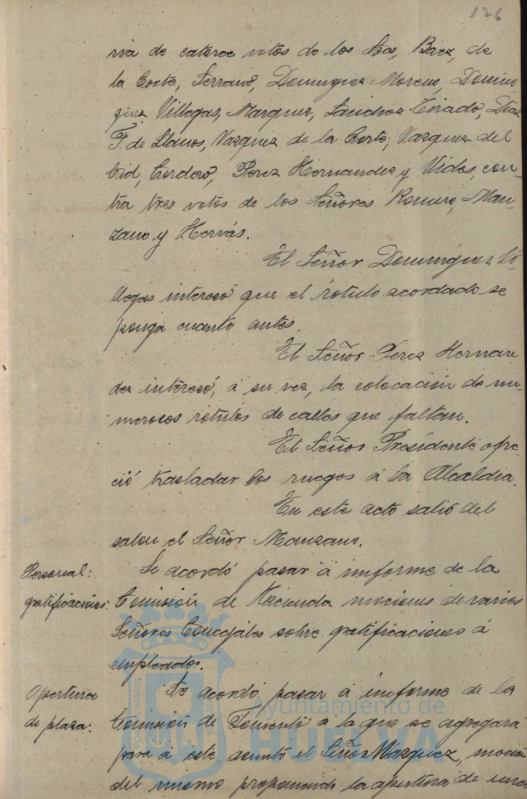 126
ria de catorce votos de los Sres, Baez, de
la Corte, Serrano, Dominguez Moreno, Domin-
guez Villegas, Marquez, Sanchez Tirado, Diaz
F. de Llanos, Vazquez de la Corte, Vazquez del
Cid, Cordero, Perez Hernandez y Vides, con-
tra tres votos de los Señores Romero, Man-
zano y Hervás.
El Señor Dominguez Vi-
llegas interesó que el rotulo acordado se
ponga cuanto antes.
El Señor Pérez Hernan
dez interesó, a su vez, la colocación de nu-
merosos rotulos de calles que faltan.
El Señor Presidente ofre
ció trasladar los ruegos á la Alcaldía.
En este acto salió del
salon el Señor Manzano.
Personal: Se acordó pasar á informe de la
gratificaciones: Comisión de Hacienda mociones de varios
Señores Concejales sobre gratificaciones á
empleados.
Apertura Se acordo pasar á informe de la
de plaza: Comision de Fomento á la que se agregará
para á este asunto el Señor Marquez, moción
del mismo proponiendo la apertura de una
Ayuntamiento de
HUELVA